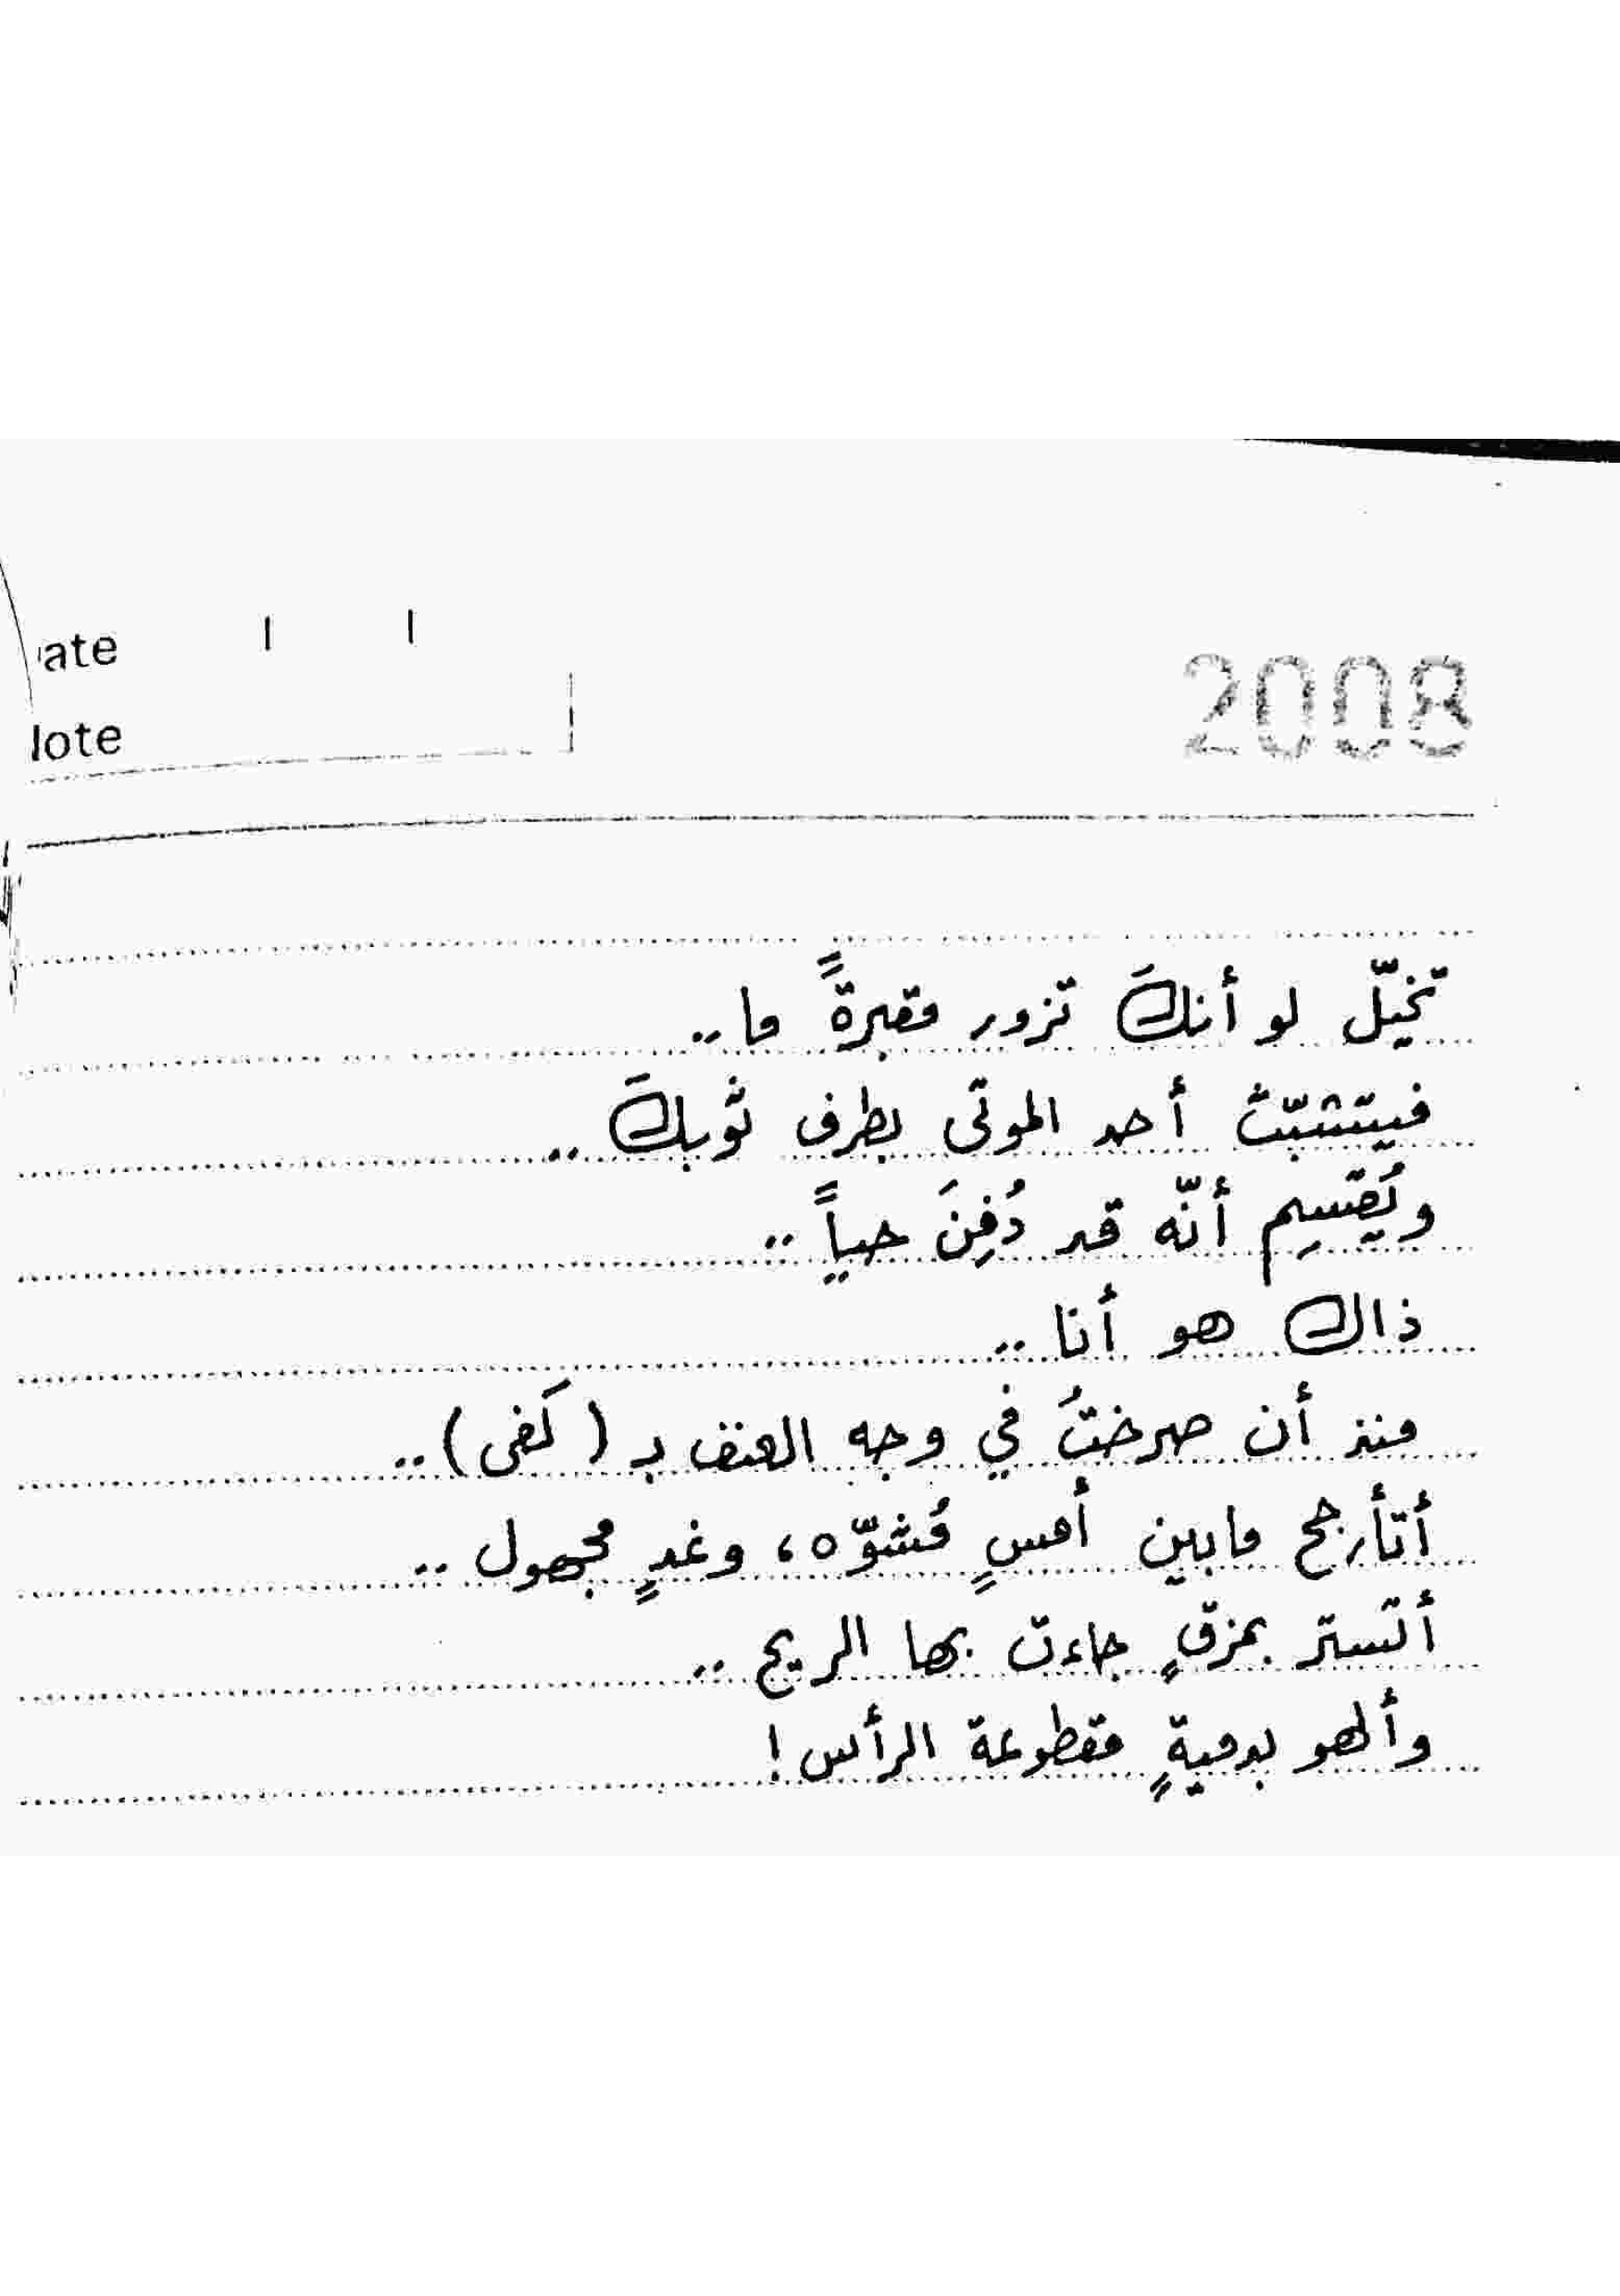 ate / /
2008
lote
تخيّل لو أنكَ تزور مقبرةً ما..
فيتشبّث أحد الموتى بطرف ثوبكَ ..
ويُقسِم أنّه قد دُفِنَ حياً ..
ذاك هو أنا ..
منذ أن صرختُ في وجه العنف بـ (كَفى) ..
أتأرجح مابين أمسٍ مُشوّه، وغدٍ مجهول ..
أتستر بمزقٍ جاءت بها الريح ..
وألهو بدميةٍ مقطوعة الرأس !